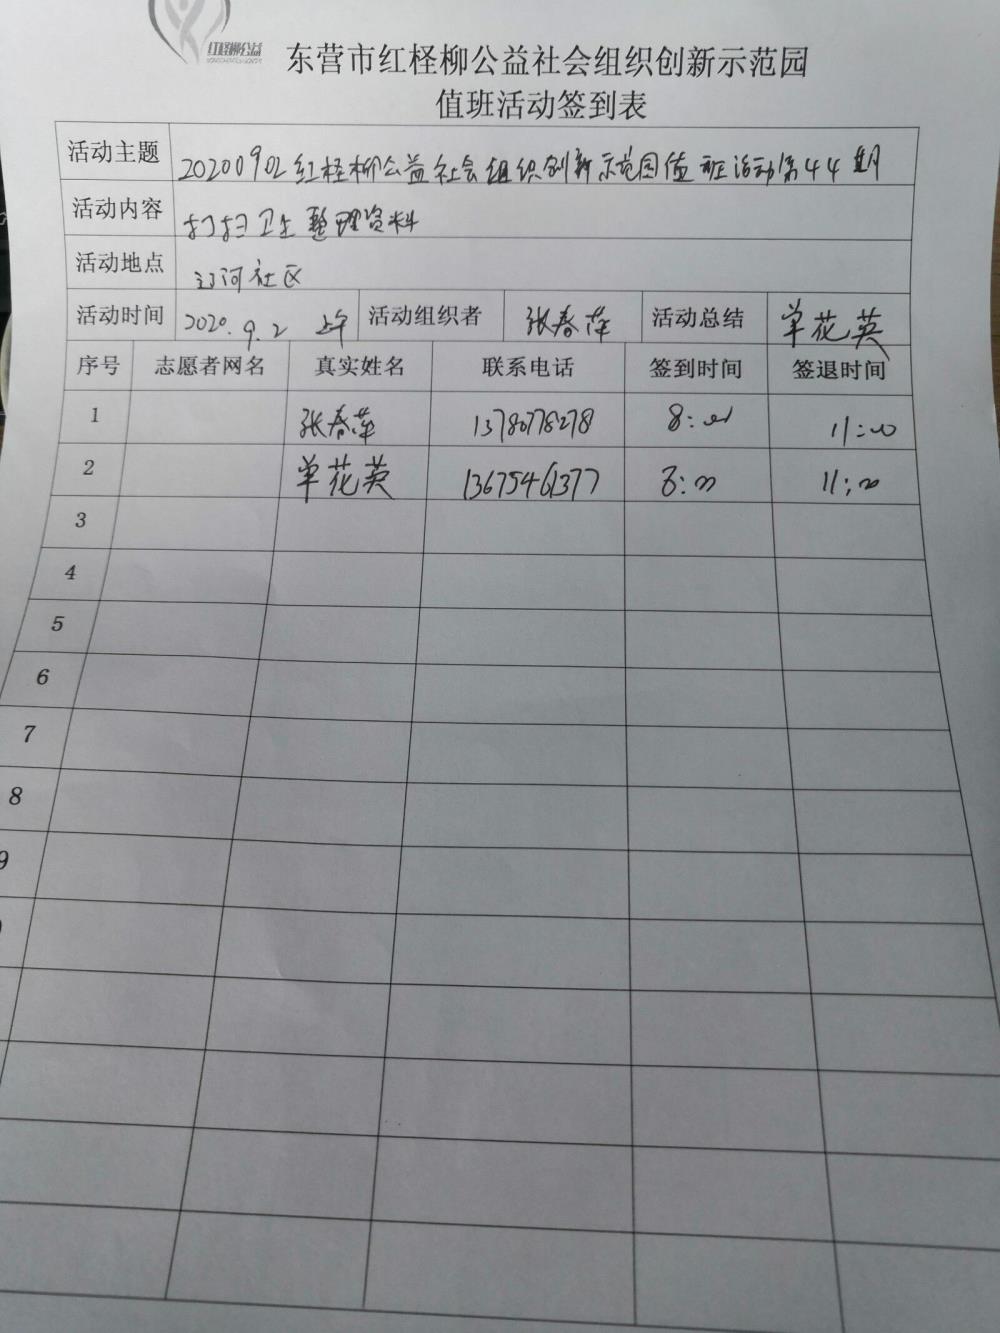 红柽柳公益
东营市红柽柳公益社会组织创新示范园
值班活动签到表
活动主题 20200902红柽柳公益社会组织创新示范园值班活动第44期
活动内容 打扫卫生 整理资料
活动地点 辽河社区
活动时间 2020.9.2 上午 活动组织者 张春萍 活动总结 单花英
序号 志愿者网名 真实姓名 联系电话 签到时间 签退时间
1 张春萍 13780778278 8:00 11:00
2 单花英 13675461377 8:00 11:00
3
4
5
6
7
8
9